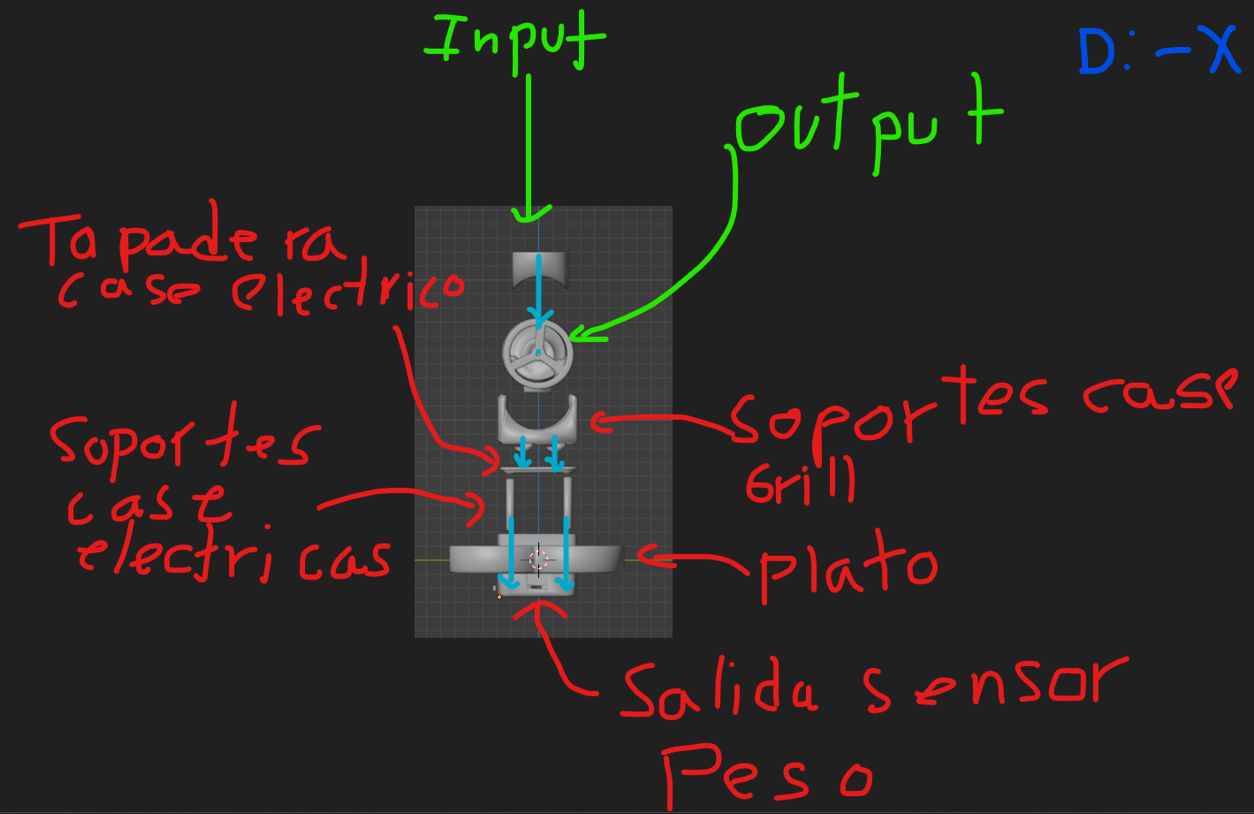 Input
D: -X
Output
Tapadera
case electrico
Soportes case
Grill
Soportes
case
electricas
plato
Salida sensor
Peso